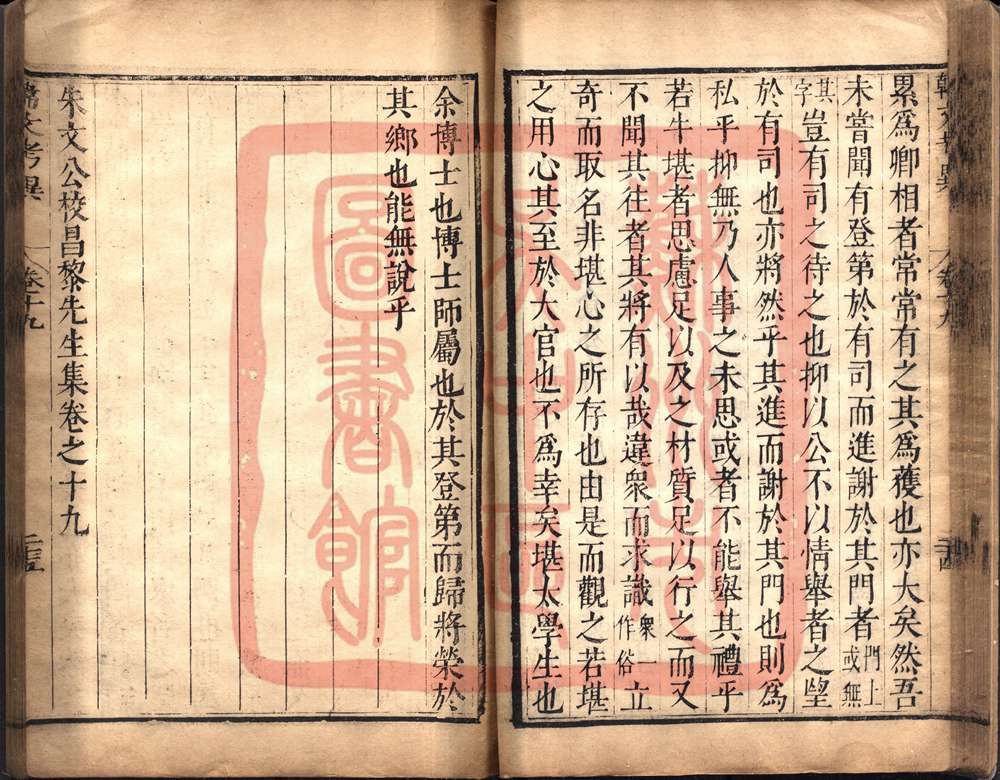 韓文考異
卷十九
二十四
累爲卿相者常常有之其爲獲也亦大矣然吾
未嘗聞有登第於有司而進謝於其門者門上或無
其字豈有司之待之也抑以公不以情舉者之望
於有司也亦將然乎其進而謝於其門也則爲
私乎抑無乃人事之未思或者不能舉其禮乎
若牛堪者思慮足以及之材質足以行之而又
不聞其往者其將有以哉違衆而求識衆一作俗立
奇而取名非堪心之所存也由是而觀之若堪
之用心其至於大官也不爲幸矣堪太學生也
余博士也博士師屬也於其登第而歸將榮於
其鄉也能無說乎
朱文公校昌黎先生集卷之十九
韓文考異
卷十九
二十五
圖書館